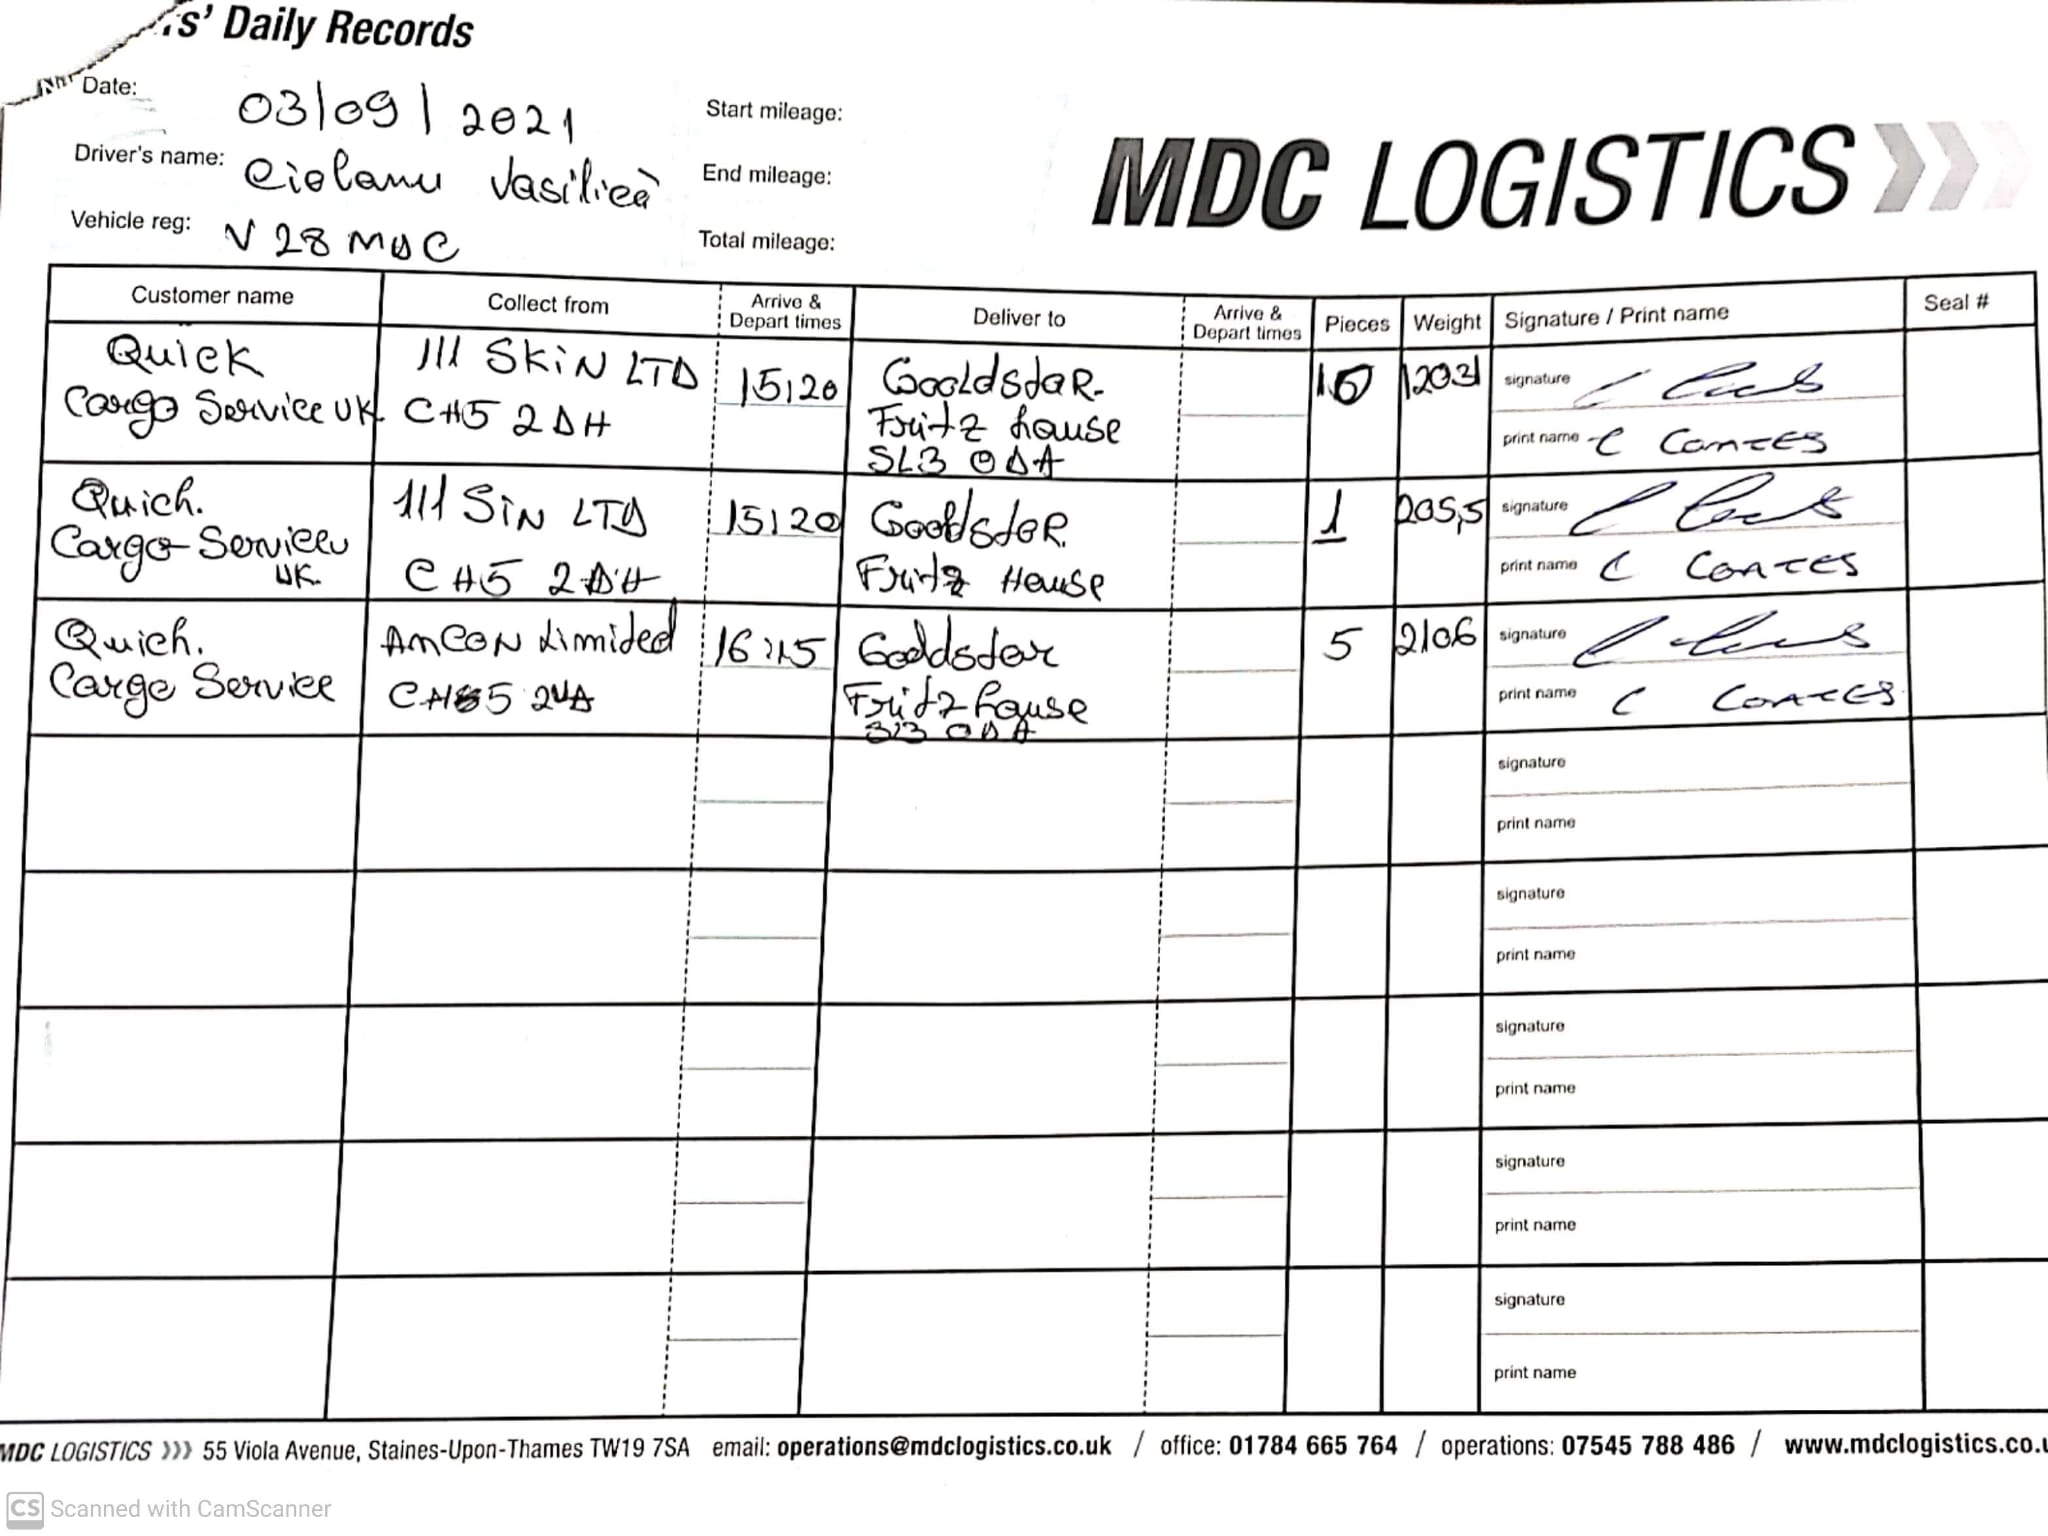 rs' Daily Records
Date: 03/09/2021
Driver's name: Ciolanu Vasilica
Vehicle reg: V 28 MDC
Start mileage:
End mileage:
Total mileage:
MDC LOGISTICS
Customer name Collect from Arrive & Depart times Deliver to Arrive & Depart times Pieces Weight Signature / Print name Seal #
Quick
Cargo Service UK
111 SKiN LTD
CH5 2DH
15:20
GooLdstaR.
Fritz house
SL3 0DA
1203
signature
print name C COATES
Quich.
Cargo Service
UK.
111 SiN LTD
CH5 2DH
15:20
GooldstaR.
Fritz House
1
205,5
signature
print name C COATES
Quich.
Cargo Service
AMCON Limited
16:15
Goldstar
Fritz house
5
2106
signature
print name C COATES
signature
print name
signature
print name
signature
print name
signature
print name
signature
print name
MDC LOGISTICS >>> 55 Viola Avenue, Staines-Upon-Thames TW19 7SA email: operations@mdclogistics.co.uk / office: 01784 665 764 / operations: 07545 788 486 / www.mdclogistics.co.u
CS Scanned with CamScanner